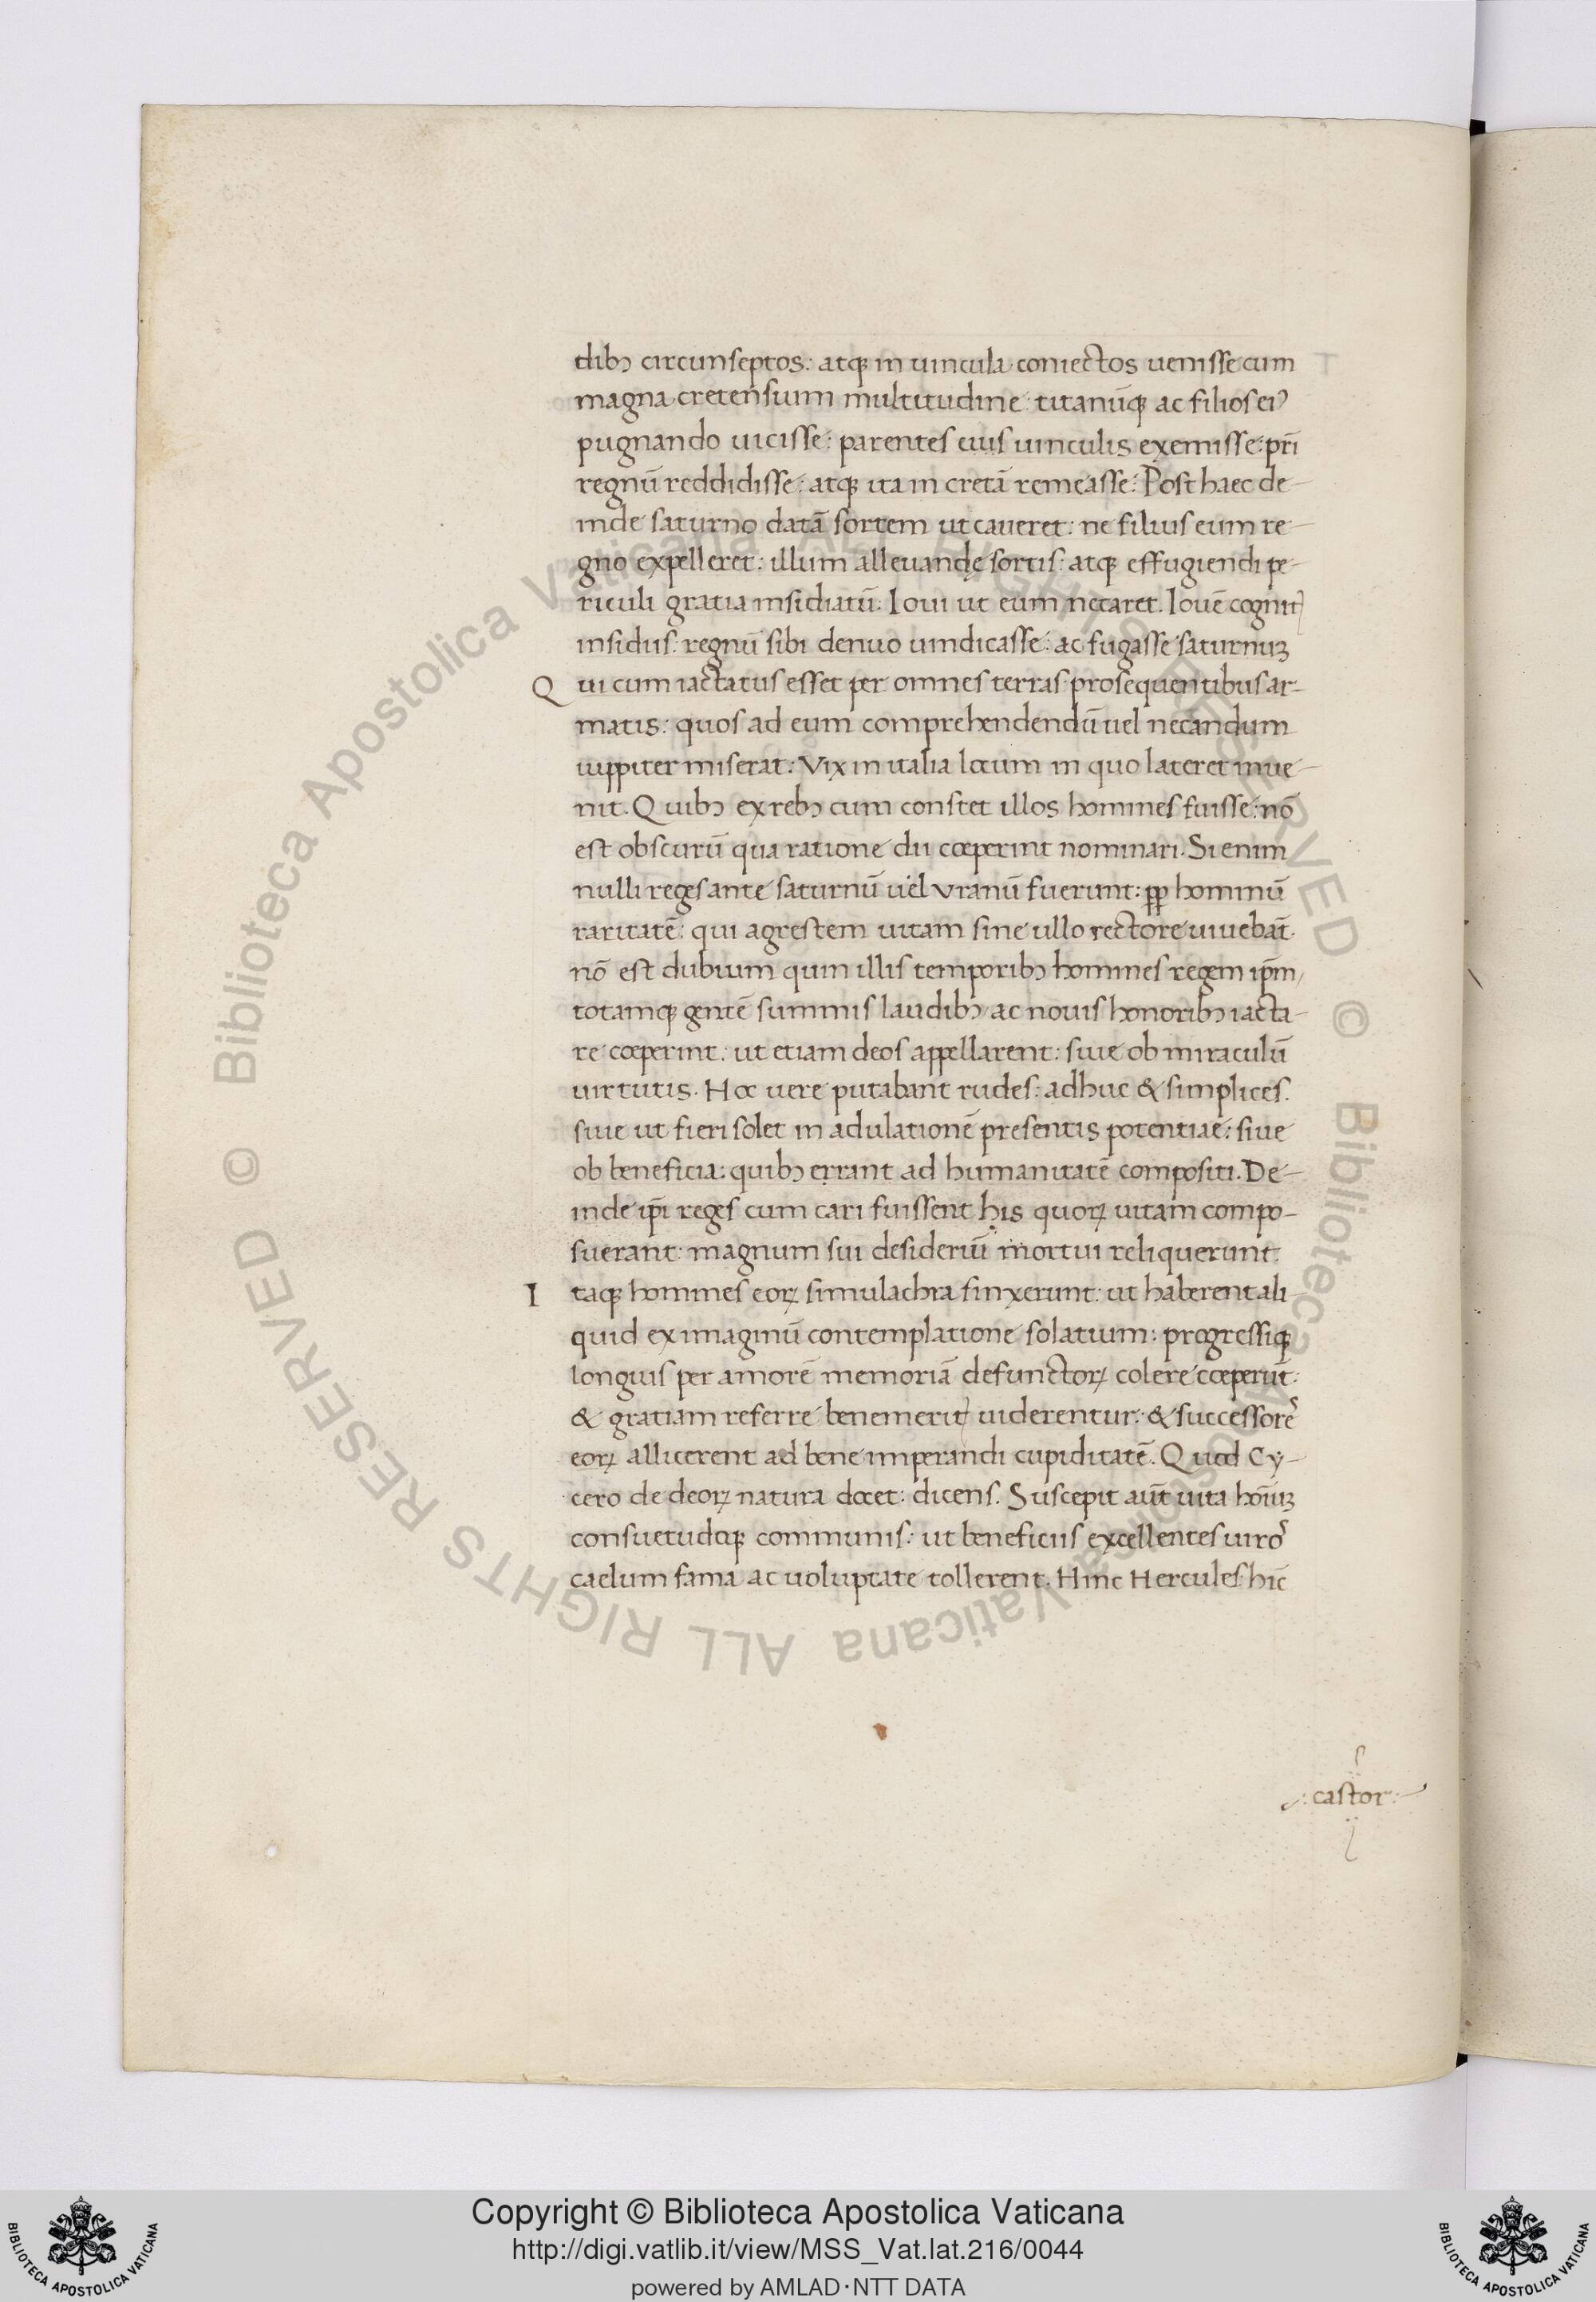 dibꝫ circunseptos: atqꝫ in uincula coniectos uenisse cum
magna cretensium multitudine: titanūqꝫ ac filios eiꝰ
pugnando uicisse: parentes eius uinculis exemisse: pr̄i
regnū reddidisse: atqꝫ ita in cretā remeasse: Post haec de-
inde saturno datā sortem ut caueret: ne filius eum re-
gno expelleret: illum alleuandę sortis: atqꝫ effugiendi pe-
riculi gratia insidiatū: Ioui ut eum necaret. Iouē cognit
insidiis: regnū sibi denuo uindicasse: ac fugasse saturnuꝫ
Qui cum iactatus esset per omnes terras prosequentibus ar-
matis: quos ad eum comprehendendū uel necandum
iuppiter miserat: Vix in italia locum in quo lateret inue-
nit. Quibꝫ ex rebꝫ cum constet illos homines fuisse: nō
est obscurū qua ratione dii coeperint nominari. Si enim
nulli reges ante saturnū uel uranū fuerunt: ꝓꝑ hominū
raritatē: qui agrestem uitam sine ullo rectore uiuebāt.
nō est dubium quin illis temporibꝫ homines regem ip̄m
totamqꝫ gentē summis laudibꝫ ac nouis honoribꝫ iacta-
re coeperint: ut etiam deos appellarent: siue ob miraculū
uirtutis. Hoc uere putabant rudes: adhuc & simplices.
siue ut fieri solet in adulationē presentis potentiae: siue
ob beneficia: quibꝫ errant ad humanitatē compositi. De-
inde ip̄i reges cum cari fuissent his quoꝝ uitam compo-
suerant: magnum sui desideriū mortui reliquerunt.
Itaqꝫ homines eoꝝ simulachra finxerunt: ut haberent ali-
quid ex imaginū contemplatione solatium: progressiqꝫ
longius per amorē memoriā defunctoꝝ colere coeperūt:
& gratiam referre benemerit uiderentur: & successorē
eoꝝ allicerent ad bene imperandi cupiditatē. Quod Cy-
cero de deoꝝ natura docet: dicens. Suscepit aūt uita hoīuꝫ
consuetudoqꝫ communis: ut beneficiis excellentes uiroˢ
caelum fama ac uoluptate tollerent. Hinc Hercules hīc
: castor:
Copyright © Biblioteca Apostolica Vaticana
http://digi.vatlib.it/view/MSS_Vat.lat.216/0044
powered by AMLAD·NTT DATA
BIBLIOTECA APOSTOLICA VATICANA
BIBLIOTECA APOSTOLICA VATICANA
© Biblioteca Apostolica Vaticana ALL RIGHTS RESERVED © Biblioteca Apostolica Vaticana ALL RIGHTS RESERVED